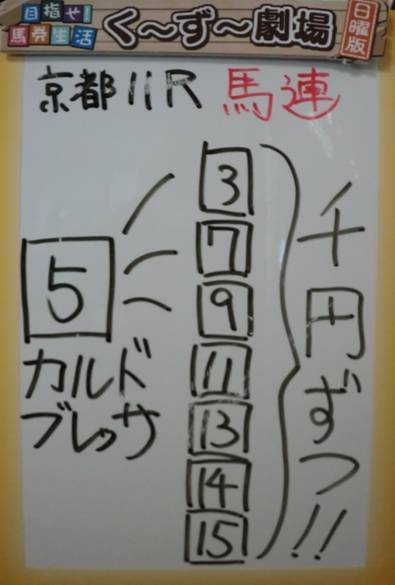 目指せ!
馬券生活
く～ず～劇場
日曜版
京都11R 馬連
5
カルド
ブレッサ
3
7
9
11
13
14
15
千円ずつ!!